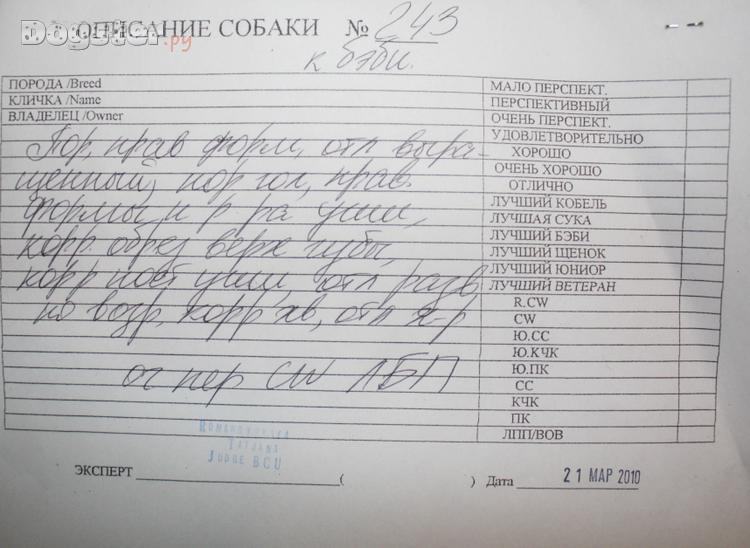 Dogster.ру
ОПИСАНИЕ СОБАКИ № 243
к бэби.
ПОРОДА /Breed
КЛИЧКА /Name
ВЛАДЕЛЕЦ /Owner
Пор, прав форм, отл выра-
щенный, кор гол, прав.
формы и р-ра уши,
корр. обрез верх губы,
корр пост уши отл разв
по возр, корр хв, отл х-р
оч пер CW ЛБП
МАЛО ПЕРСПЕКТ.
ПЕРСПЕКТИВНЫЙ
ОЧЕНЬ ПЕРСПЕКТ.
УДОВЛЕТВОРИТЕЛЬНО
ХОРОШО
ОЧЕНЬ ХОРОШО
ОТЛИЧНО
ЛУЧШИЙ КОБЕЛЬ
ЛУЧШАЯ СУКА
ЛУЧШИЙ БЭБИ
ЛУЧШИЙ ЩЕНОК
ЛУЧШИЙ ЮНИОР
ЛУЧШИЙ ВЕТЕРАН
R.CW
CW
Ю.СС
Ю.КЧК
Ю.ПК
СС
КЧК
ПК
ЛПП/ВОВ
TATJANA
JUDGE BCU
ЭКСПЕРТ ( ) Дата 21 МАР 2010